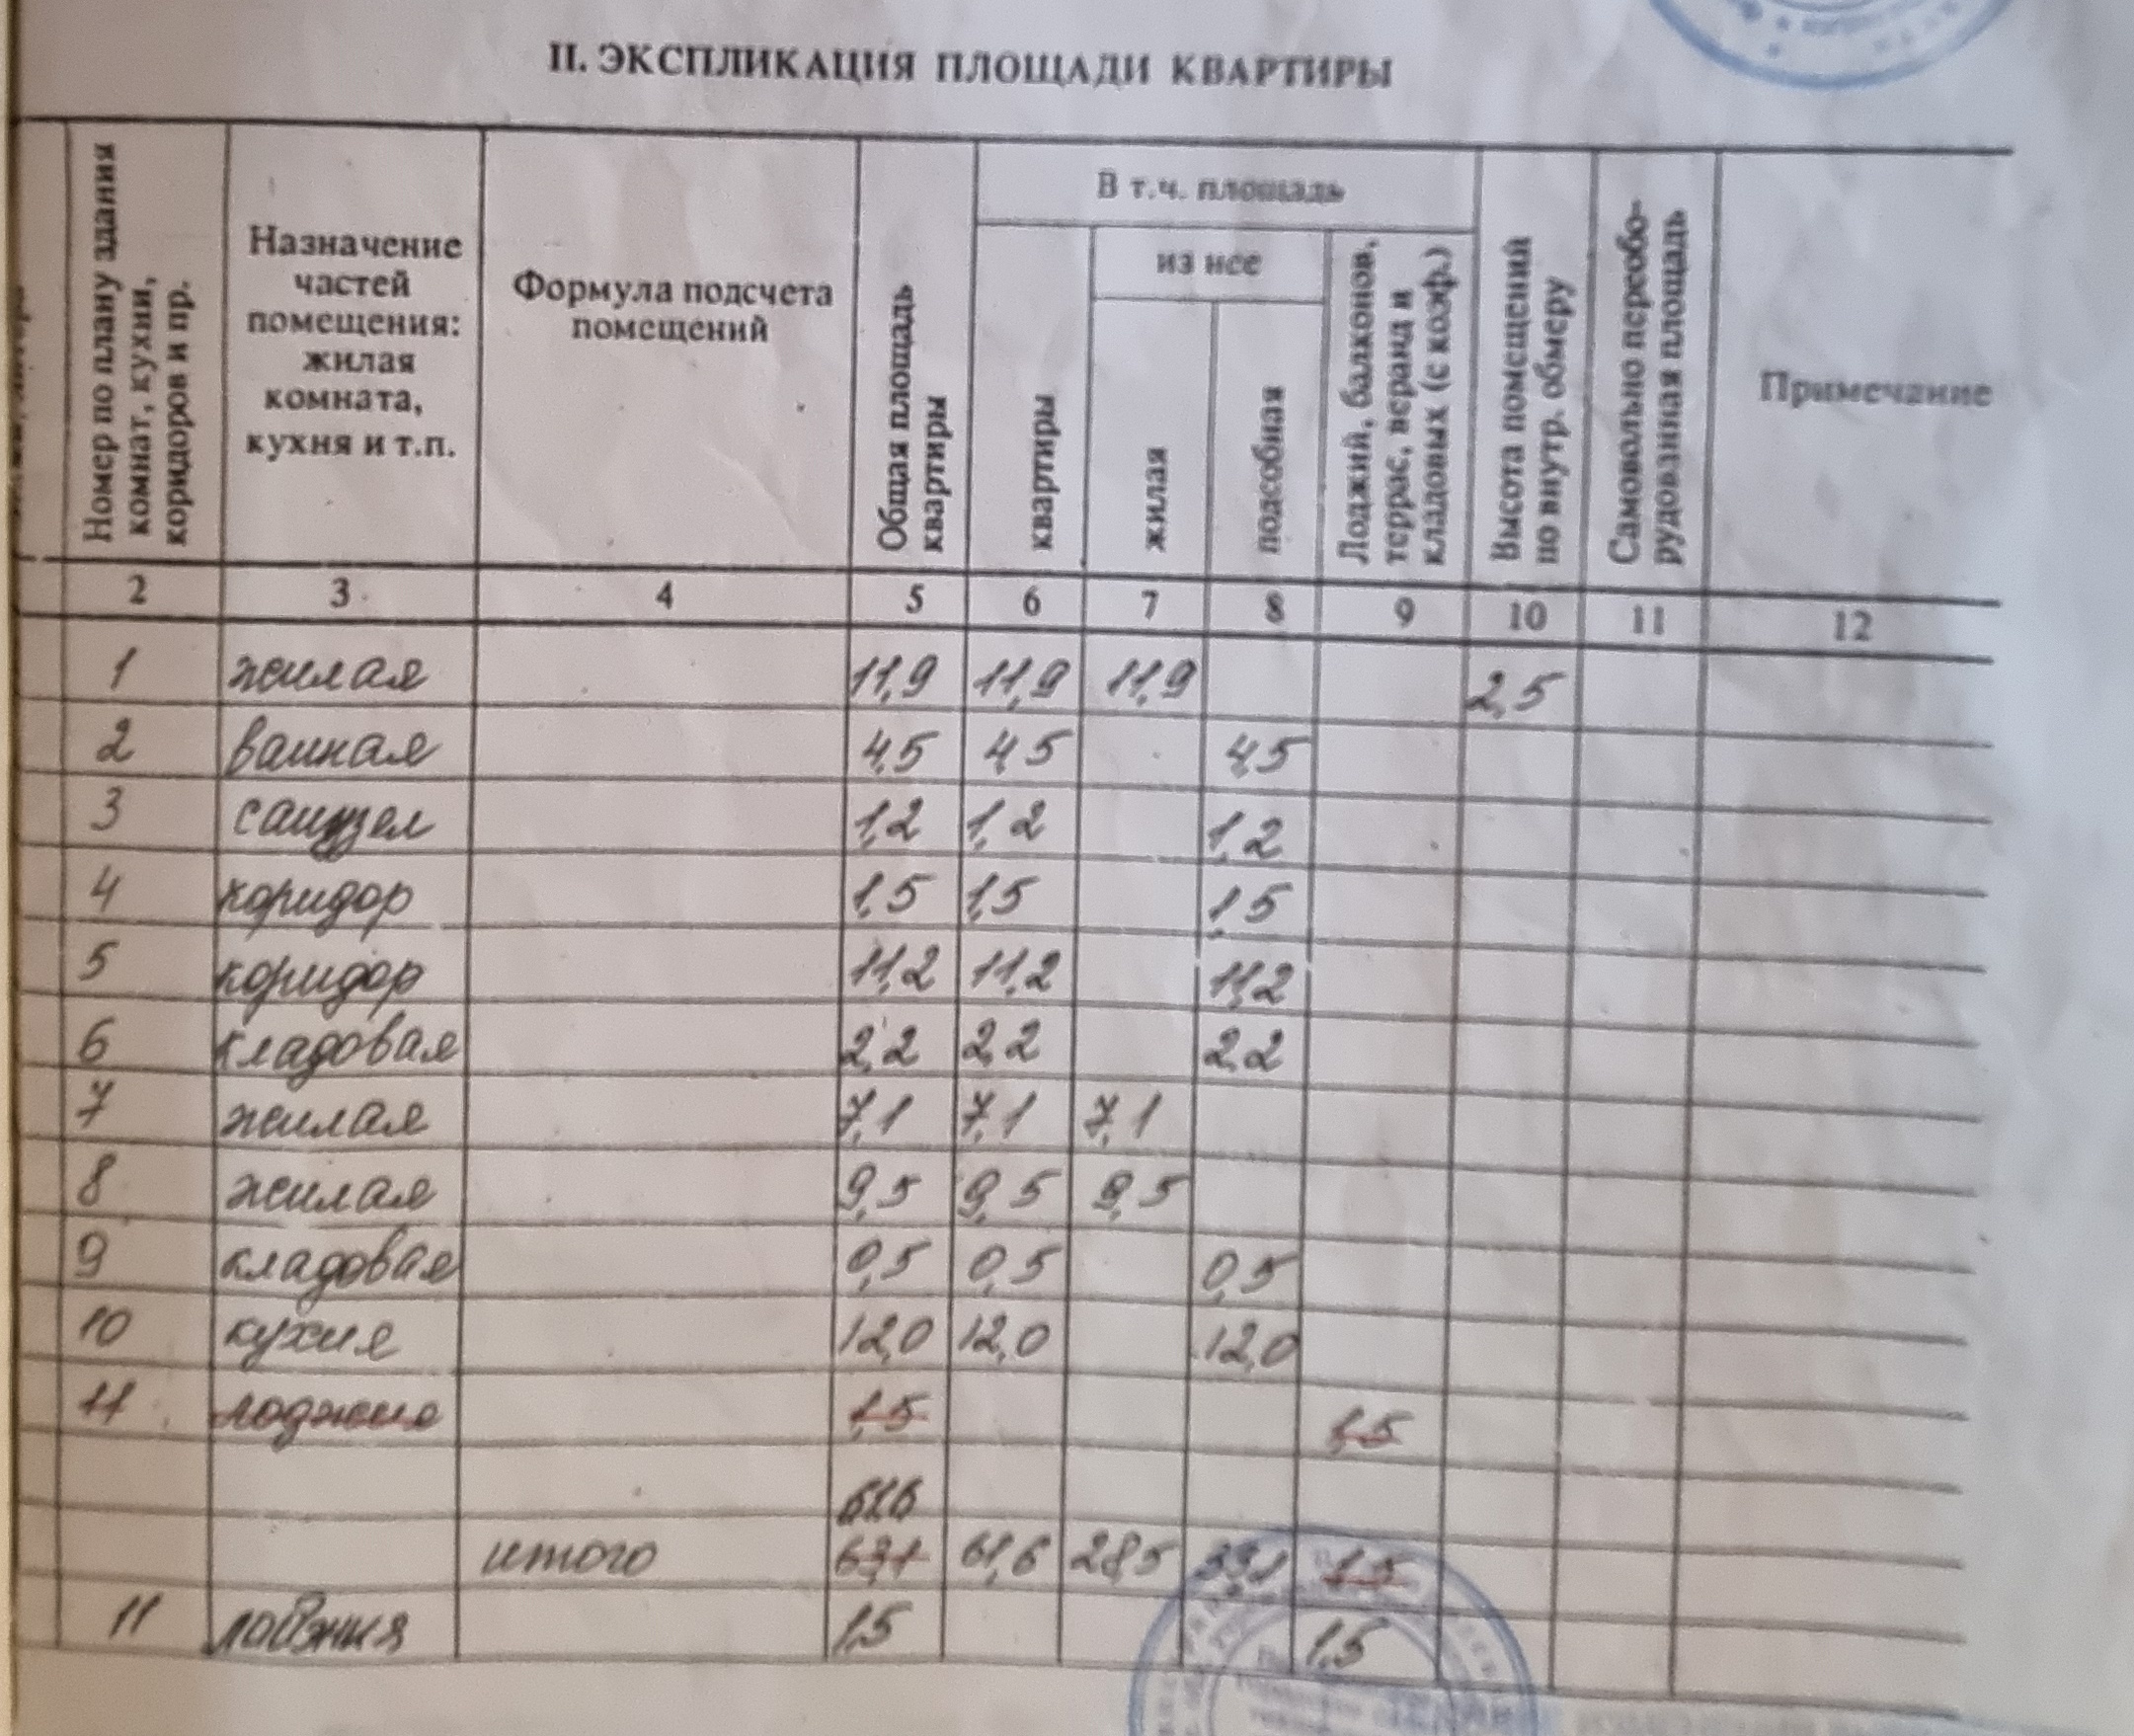 II. ЭКСПЛИКАЦИЯ ПЛОЩАДИ КВАРТИРЫ
Номер по плану здания
комнат, кухни,
коридоров и пр.
Назначение
частей
помещения:
жилая
комната,
кухня и т.п.
Формула подсчета
помещений
Общая площадь
квартиры
В т.ч. площадь
квартиры
из нее
жилая
подсобная
Лоджий, балконов,
террас, веранд и
кладовых (с коэф.)
Высота помещений
по внутр. обмеру
Самовольно переобо-
рудованная площадь
Примечание
2 3 4 5 6 7 8 9 10 11 12
1 жилая 11,9 11,9 11,9 2,5
2 ванная 4,5 4,5 4,5
3 санузел 1,2 1,2 1,2
4 коридор 1,5 1,5 1,5
5 коридор 11,2 11,2 11,2
6 кладовая 2,2 2,2 2,2
7 жилая 7,1 7,1 7,1
8 жилая 9,5 9,5 9,5
9 кладовая 0,5 0,5 0,5
10 кухня 12,0 12,0 12,0
11 лоджия 1,5 1,5
61,6
итого 63,1 61,6 28,5 33,1 1,5
11 лоджия 1,5 1,5